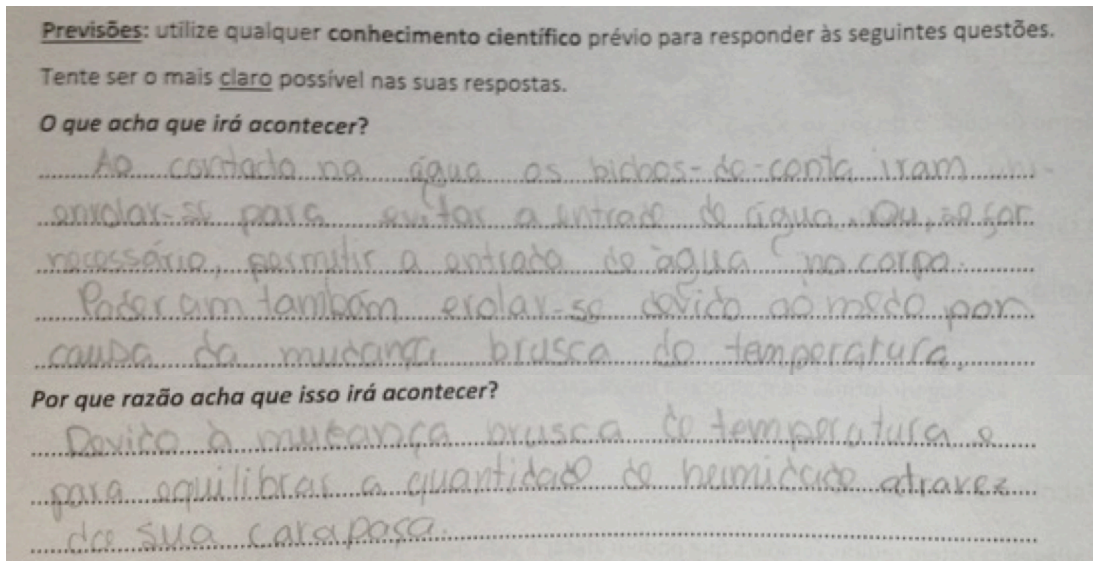 Previsões: utilize qualquer conhecimento científico prévio para responder às seguintes questões.
Tente ser o mais claro possível nas suas respostas.
O que acha que irá acontecer?
Ao contacto na água os bichos-de-conta iram
enrolar-se para evitar a entrada de água. Ou, se for
necessário, permitir a entrada de água no corpo.
Poderam também erolar-se devido ao medo por
causa da mudança brusca de temperatura.
Por que razão acha que isso irá acontecer?
Devido à mudança brusca de temperatura e
para equilibrar a quantidade de humidade atravez
da sua carapaça.